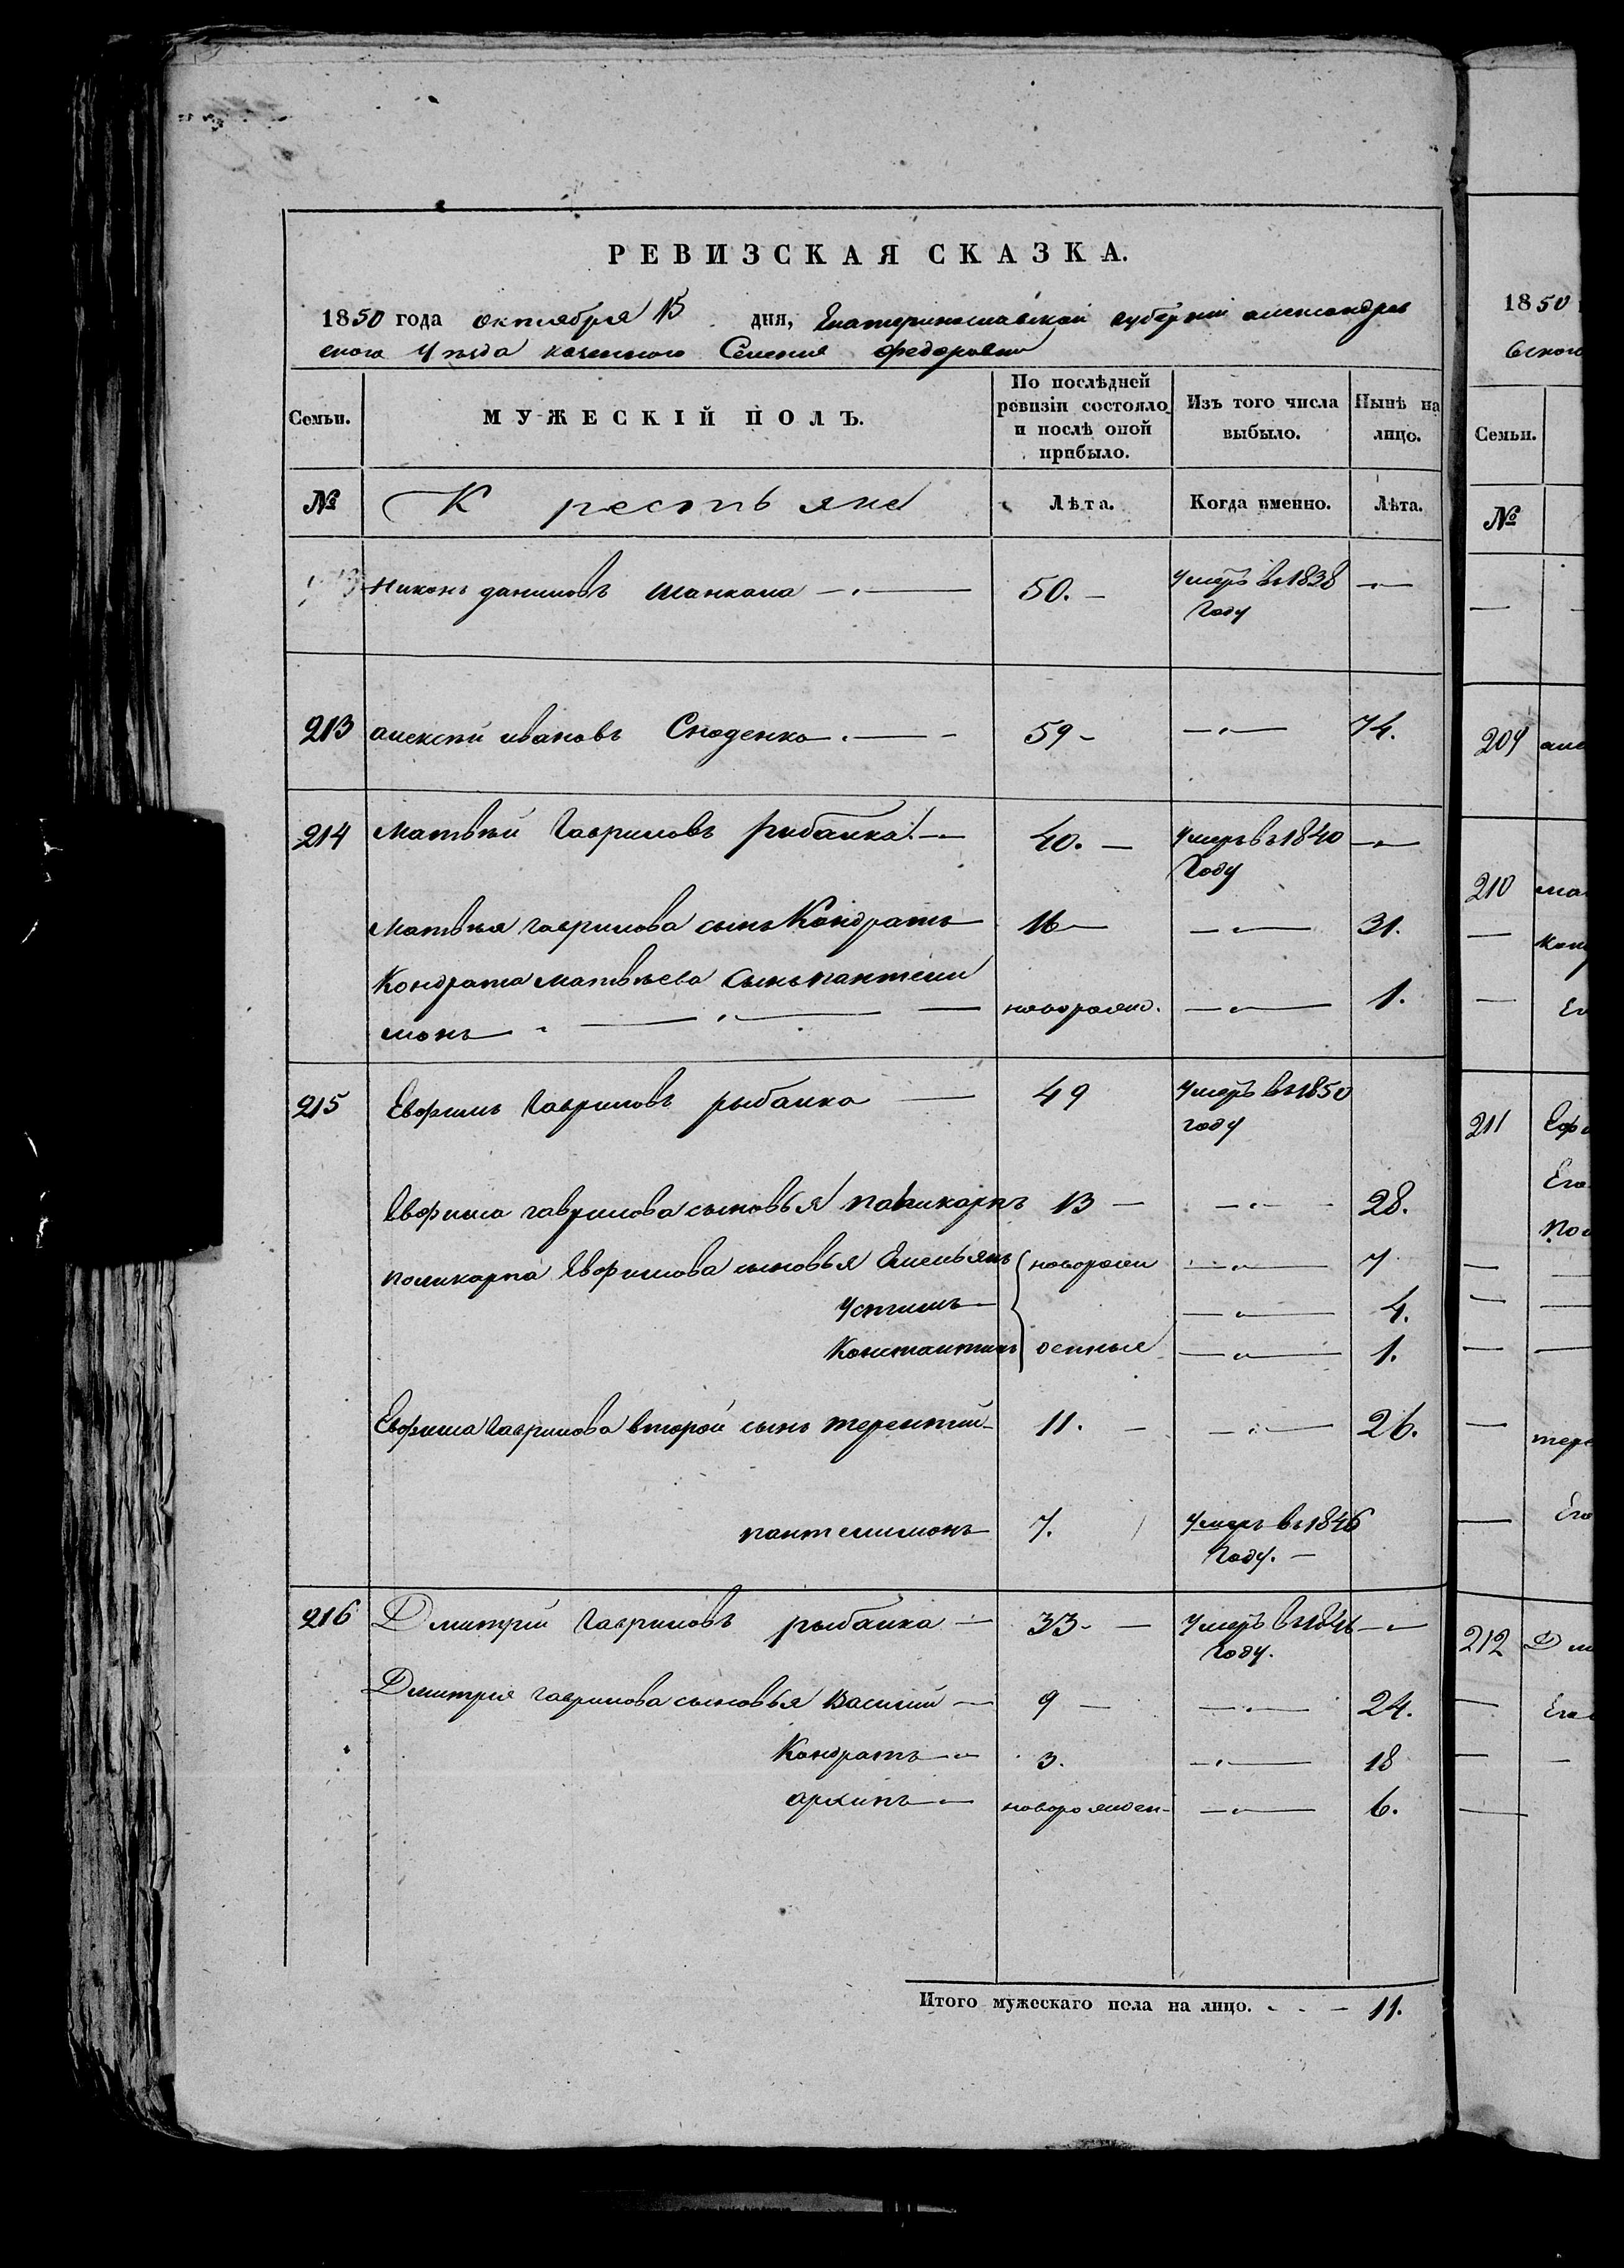 РЕВИЗСКАЯ СКАЗКА.
1850 года октября 15 дня, Екатеринославской губернии александров
ского уѣзда казенного Селения Федоровки
Семьи. МУЖЕСКІЙ ПОЛЪ. По послѣдней ревизіи состояло и послѣ оной прибыло. Изъ того числа выбыло. Нынѣ на лицо.
№ Крестьяне Лѣта. Когда именно. Лѣта.
Никонъ даниловъ 50. умеръ въ 1838 году
213 алексѣй ивановъ 59 74.
214 Матвѣй Гавриловъ рибалка 40. умеръ въ 1840 Году
Матвѣя гаврилова сынъ Кондратъ 16 31.
Кондрата матвѣева сынъ пантели
монъ новорожд. 1.
215 Евфимъ Гавриловъ рыбалка 49 умеръ въ 1850 году
Евфима гаврилова сыновья поликарпъ 13 28.
поликарпа Евфимова сыновья Емельянъ новорожд 7
устимъ 4.
Константинъ денные 1.
Евфима Гаврилова второй сынъ терентий 11. 26.
пантелимонъ 7. умеръ въ 1846 Году.
216 Дмитрий Гавриловъ рыбалка 33. умеръ въ Году.
Дмитрия гаврилова сыновья Василий 9 24.
Кондратъ 3. 18
архипъ новорожден 6.
Итого мужескаго пола на лицо. 11.
1850
вского
Семьи.
№
209 але
210 ма
211 Ефи
Его
пол
тере
Его
212 Дми
Его